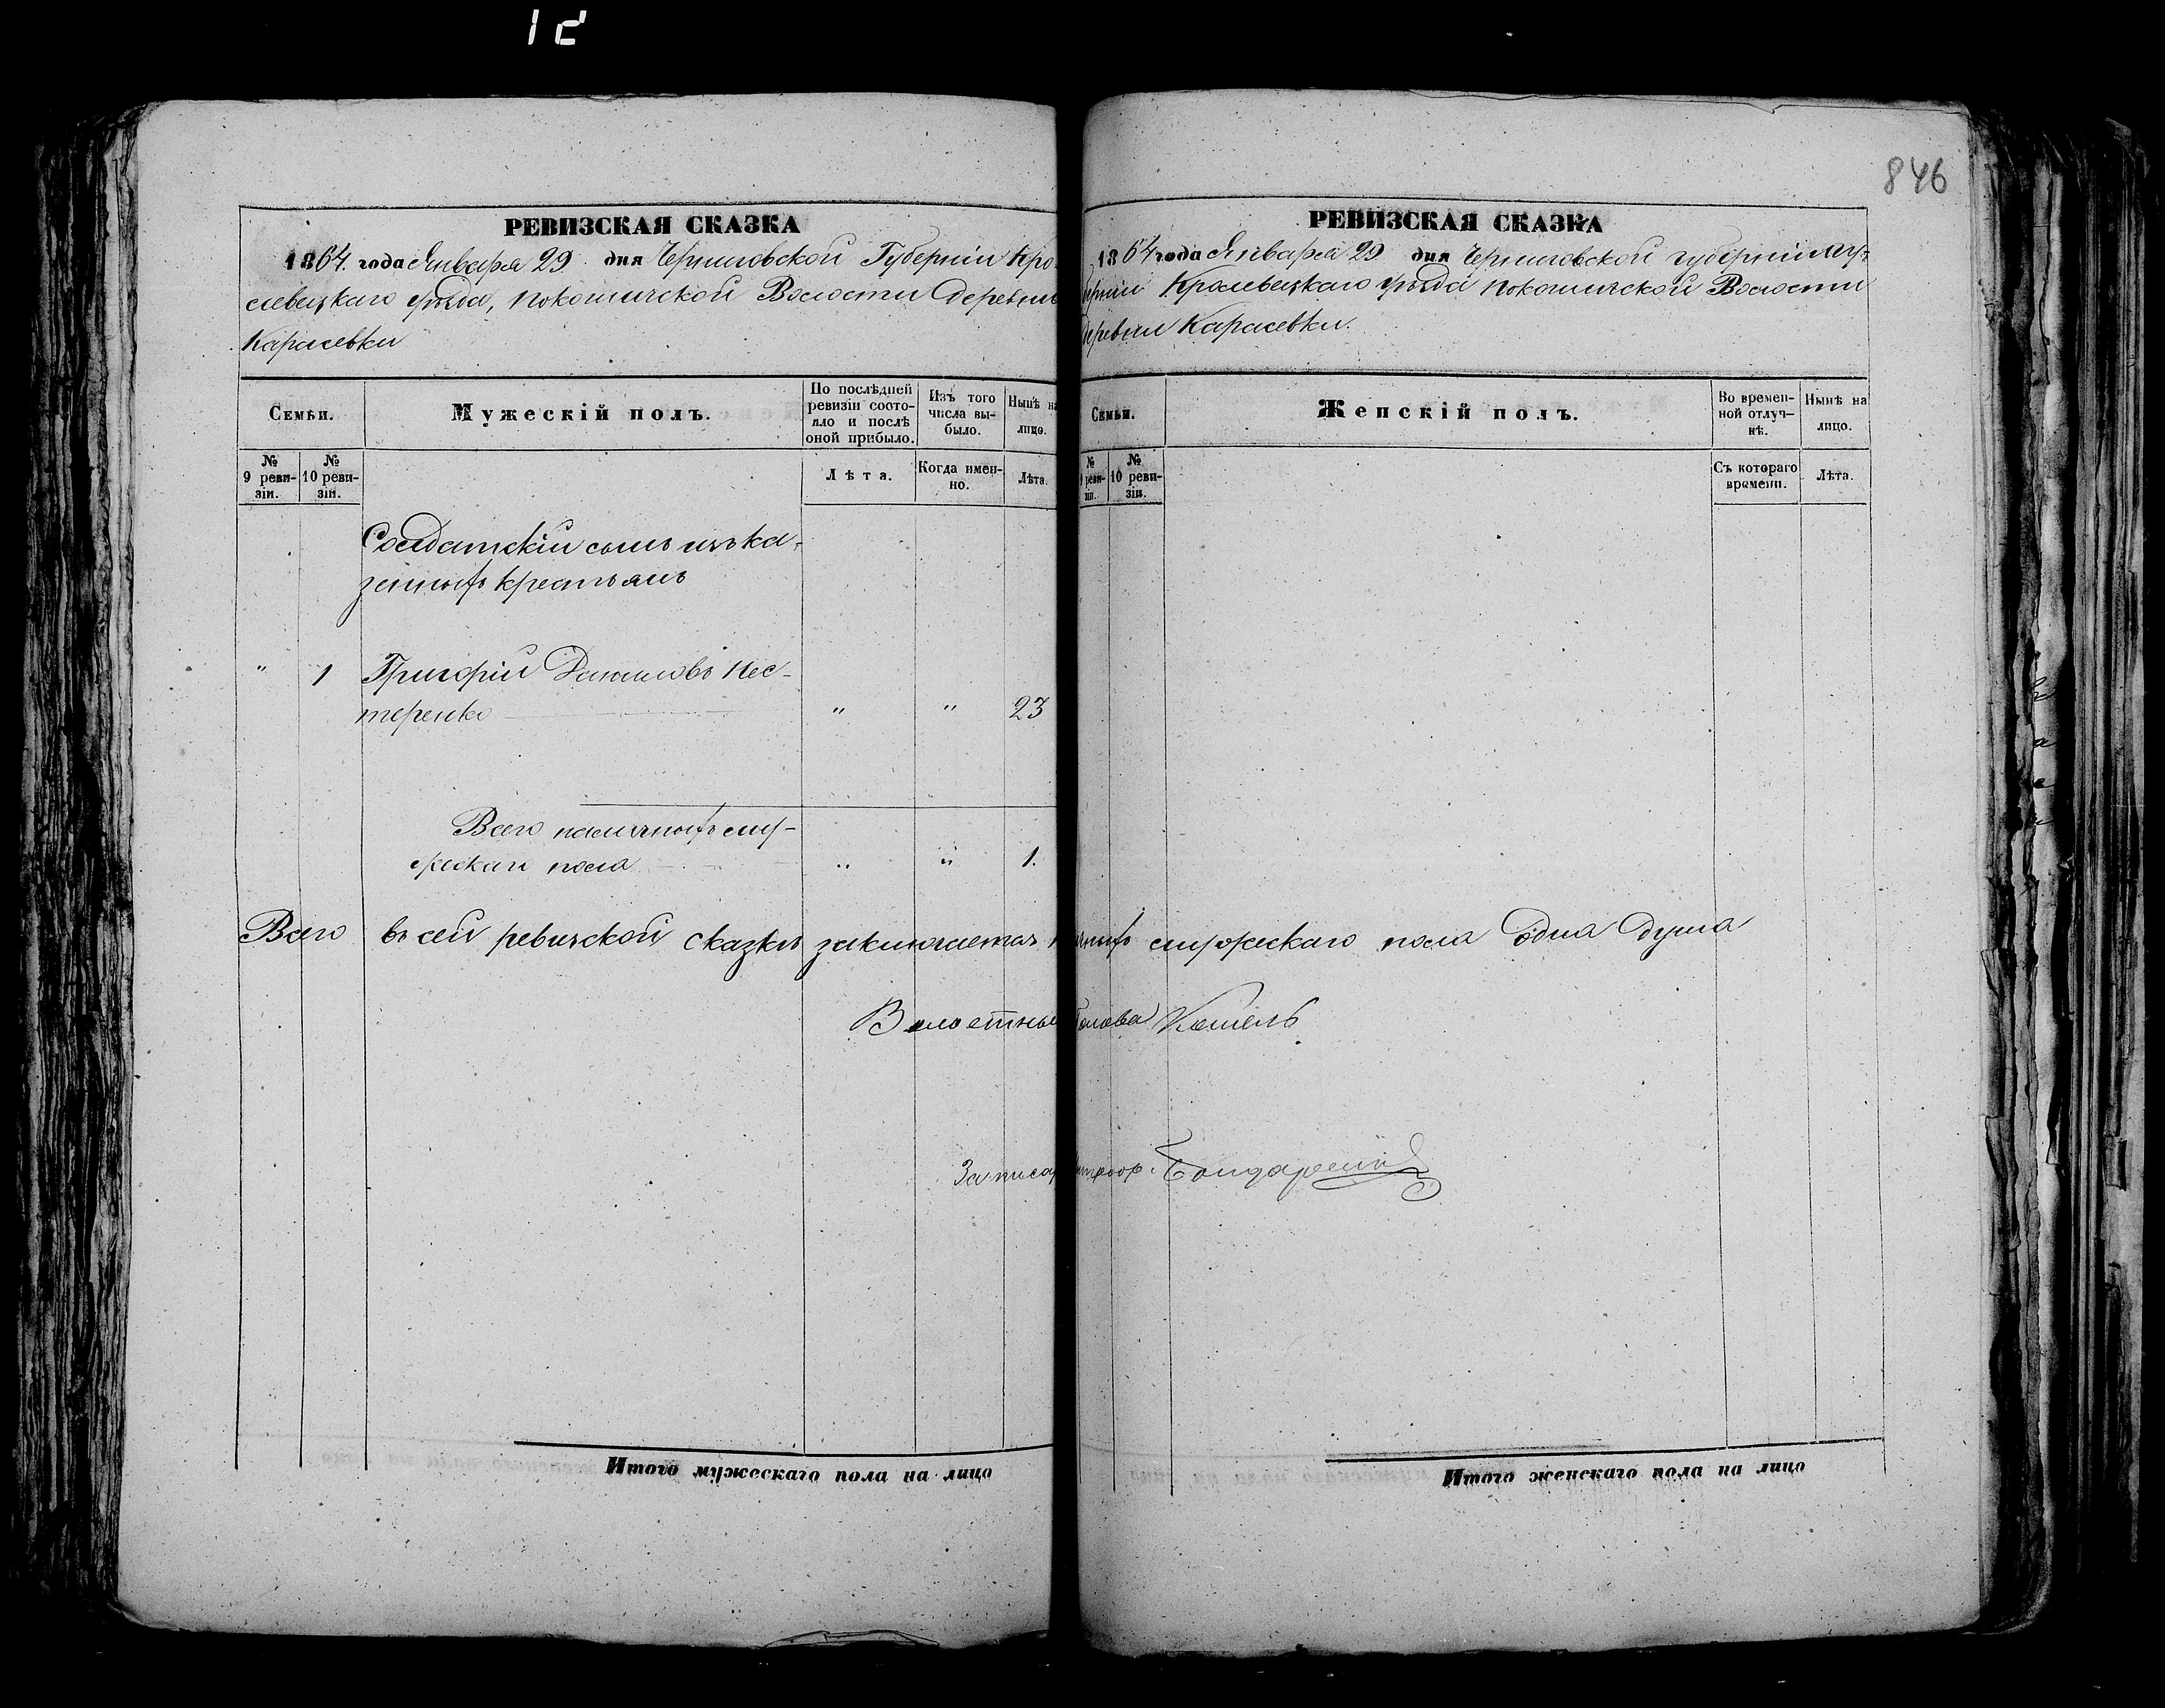 12
РЕВИЗСКАЯ СКАЗКА
1864. года Января 29 дня Черниговской Губерніи Кро-
левецкаго уѣзда, Покошичской Волости Деревни
Карасевки
Семьи.
Мужескій полъ.
По послѣдней ревизіи состояло и послѣ оной прибыло.
Изъ того числа выбыло.
Нынѣ на лицо.
№ 9 ревизіи.
№ 10 ревизіи.
Лѣта.
Когда именно.
Лѣта.
Солдатскій сынъ изъ ка-
зенныхъ крестьянъ
" 1 Григорій Даниловъ Нес-
теренко " " 23
Всего наличныхъ му-
жескаго пола " " 1.
Всего въ сей ревизской сказкѣ заключается
Волостный
За писар
Итого мужескаго пола на лицо
846
РЕВИЗСКАЯ СКАЗКА
1864 года Января 29 дня Черниговской губерніи
берніи Кролевецкаго уѣзда Покошичской Волости
деревни Карасевки.
Семьи.
Женскій полъ.
Во временной отлучкѣ.
Нынѣ на лицо.
№ 9 ревизіи.
№ 10 ревизіи.
Съ котораго времени.
Лѣта.
мужескаго пола одна душа
Голова Кошель
Бондаренко
Итого женскаго пола на лицо